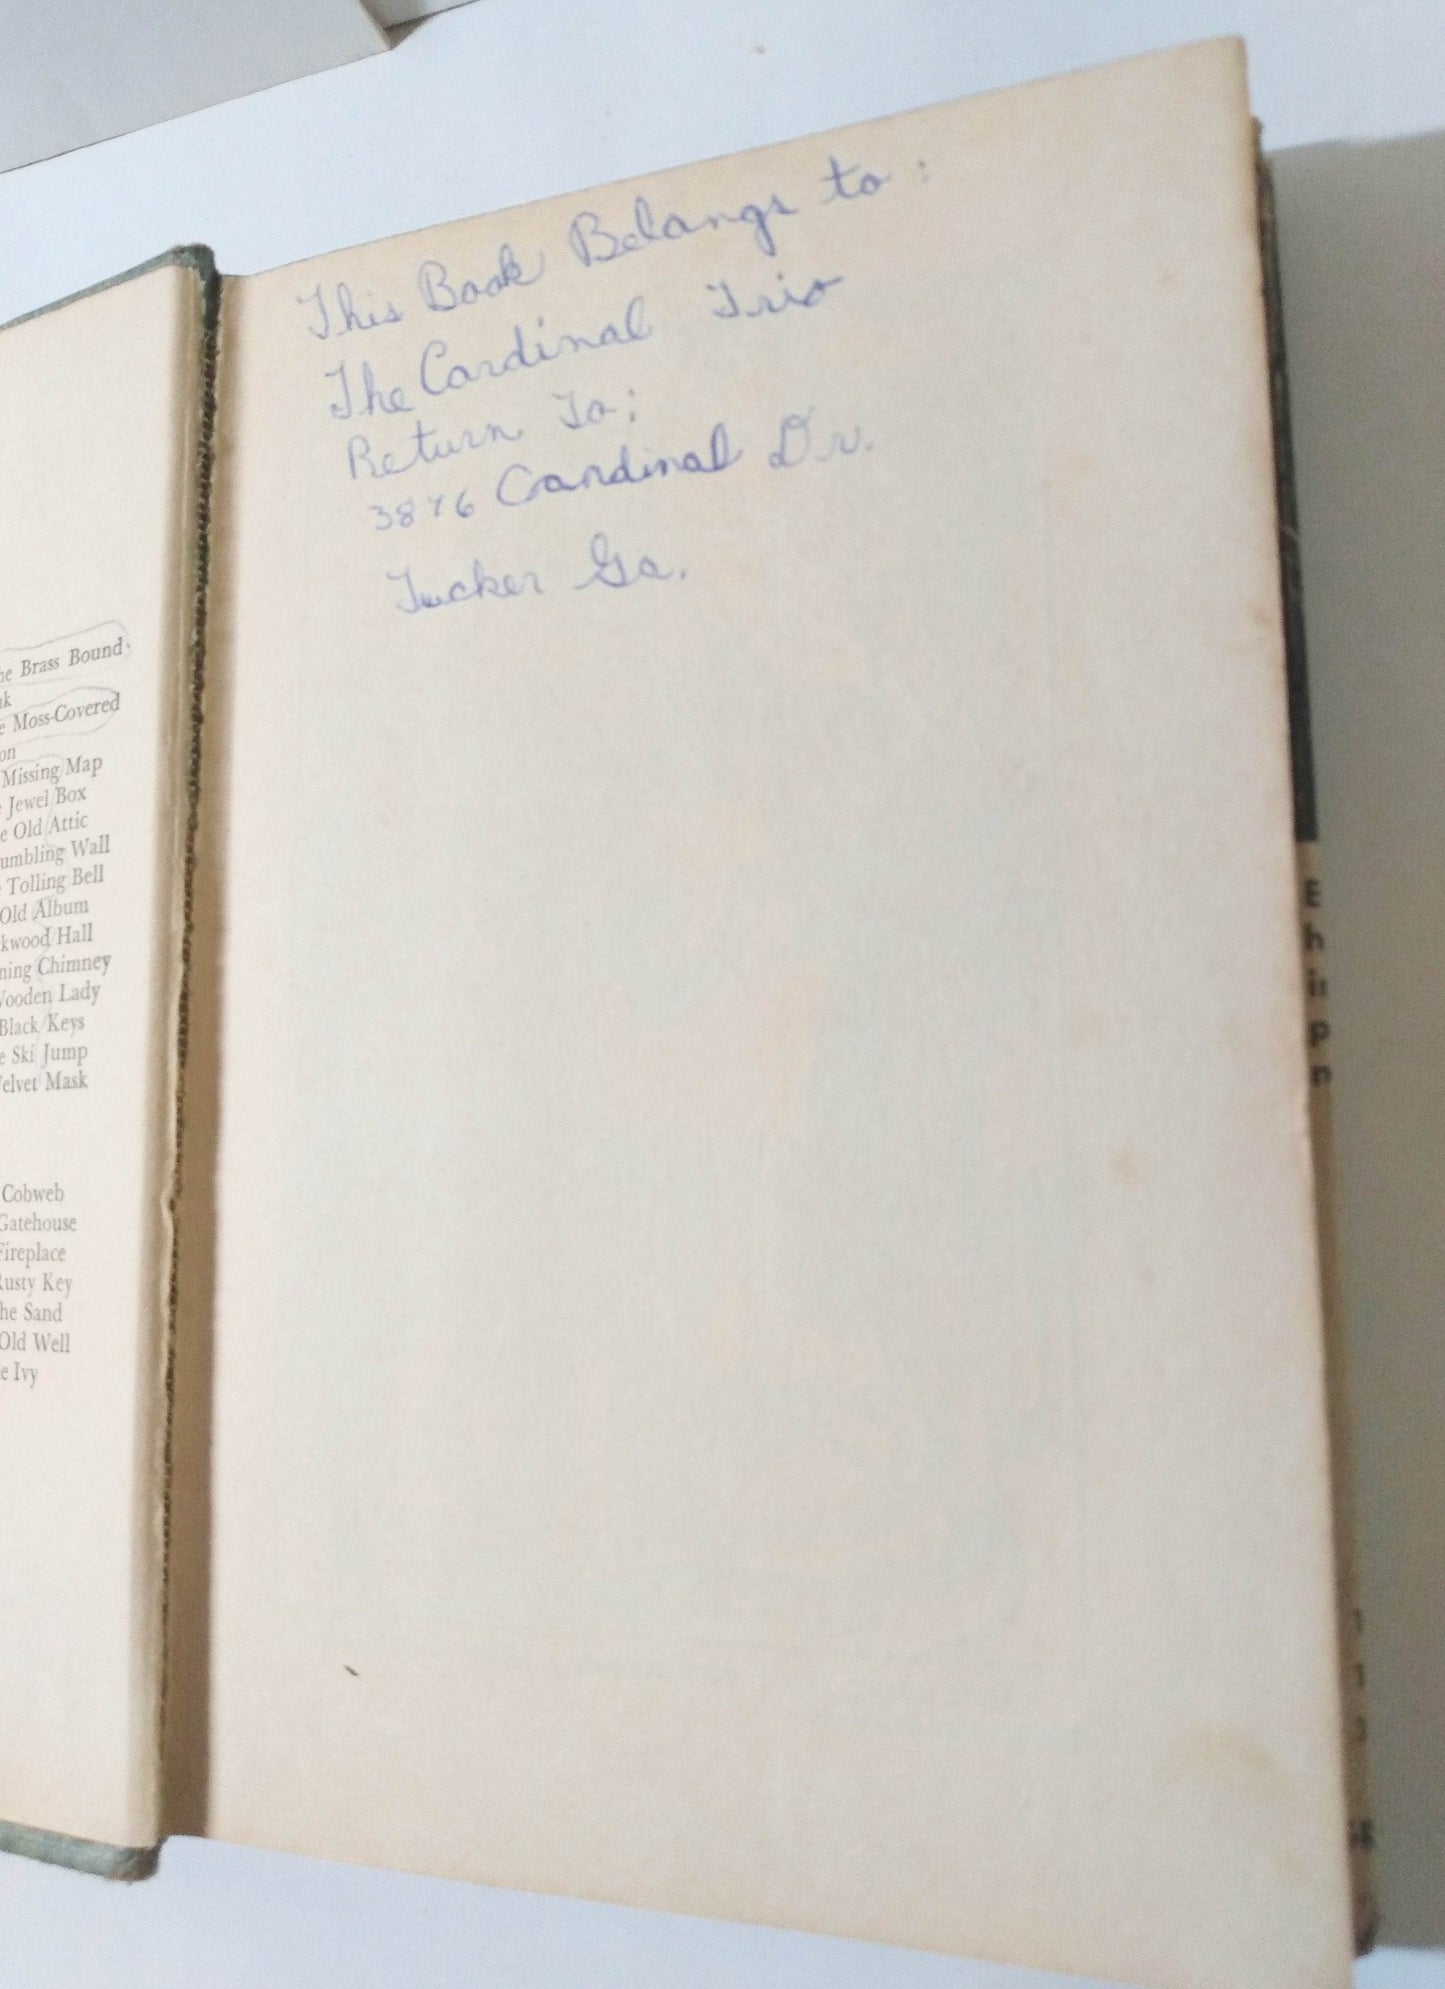 he Brass Bound
nk
e Moss-Covered
on
Missing Map
Jewel Box
e Old Attic
umbling Wall
Tolling Bell
Old Album
kwood Hall
ning Chimney
Wooden Lady
Black Keys
e Ski Jump
Velvet Mask
Cobweb
Gatehouse
Fireplace
Rusty Key
he Sand
Old Well
e Ivy
This Book Belongs to:
The Cardinal Trio
Return To:
3876 Cardinal Dr.
Tucker Ga.